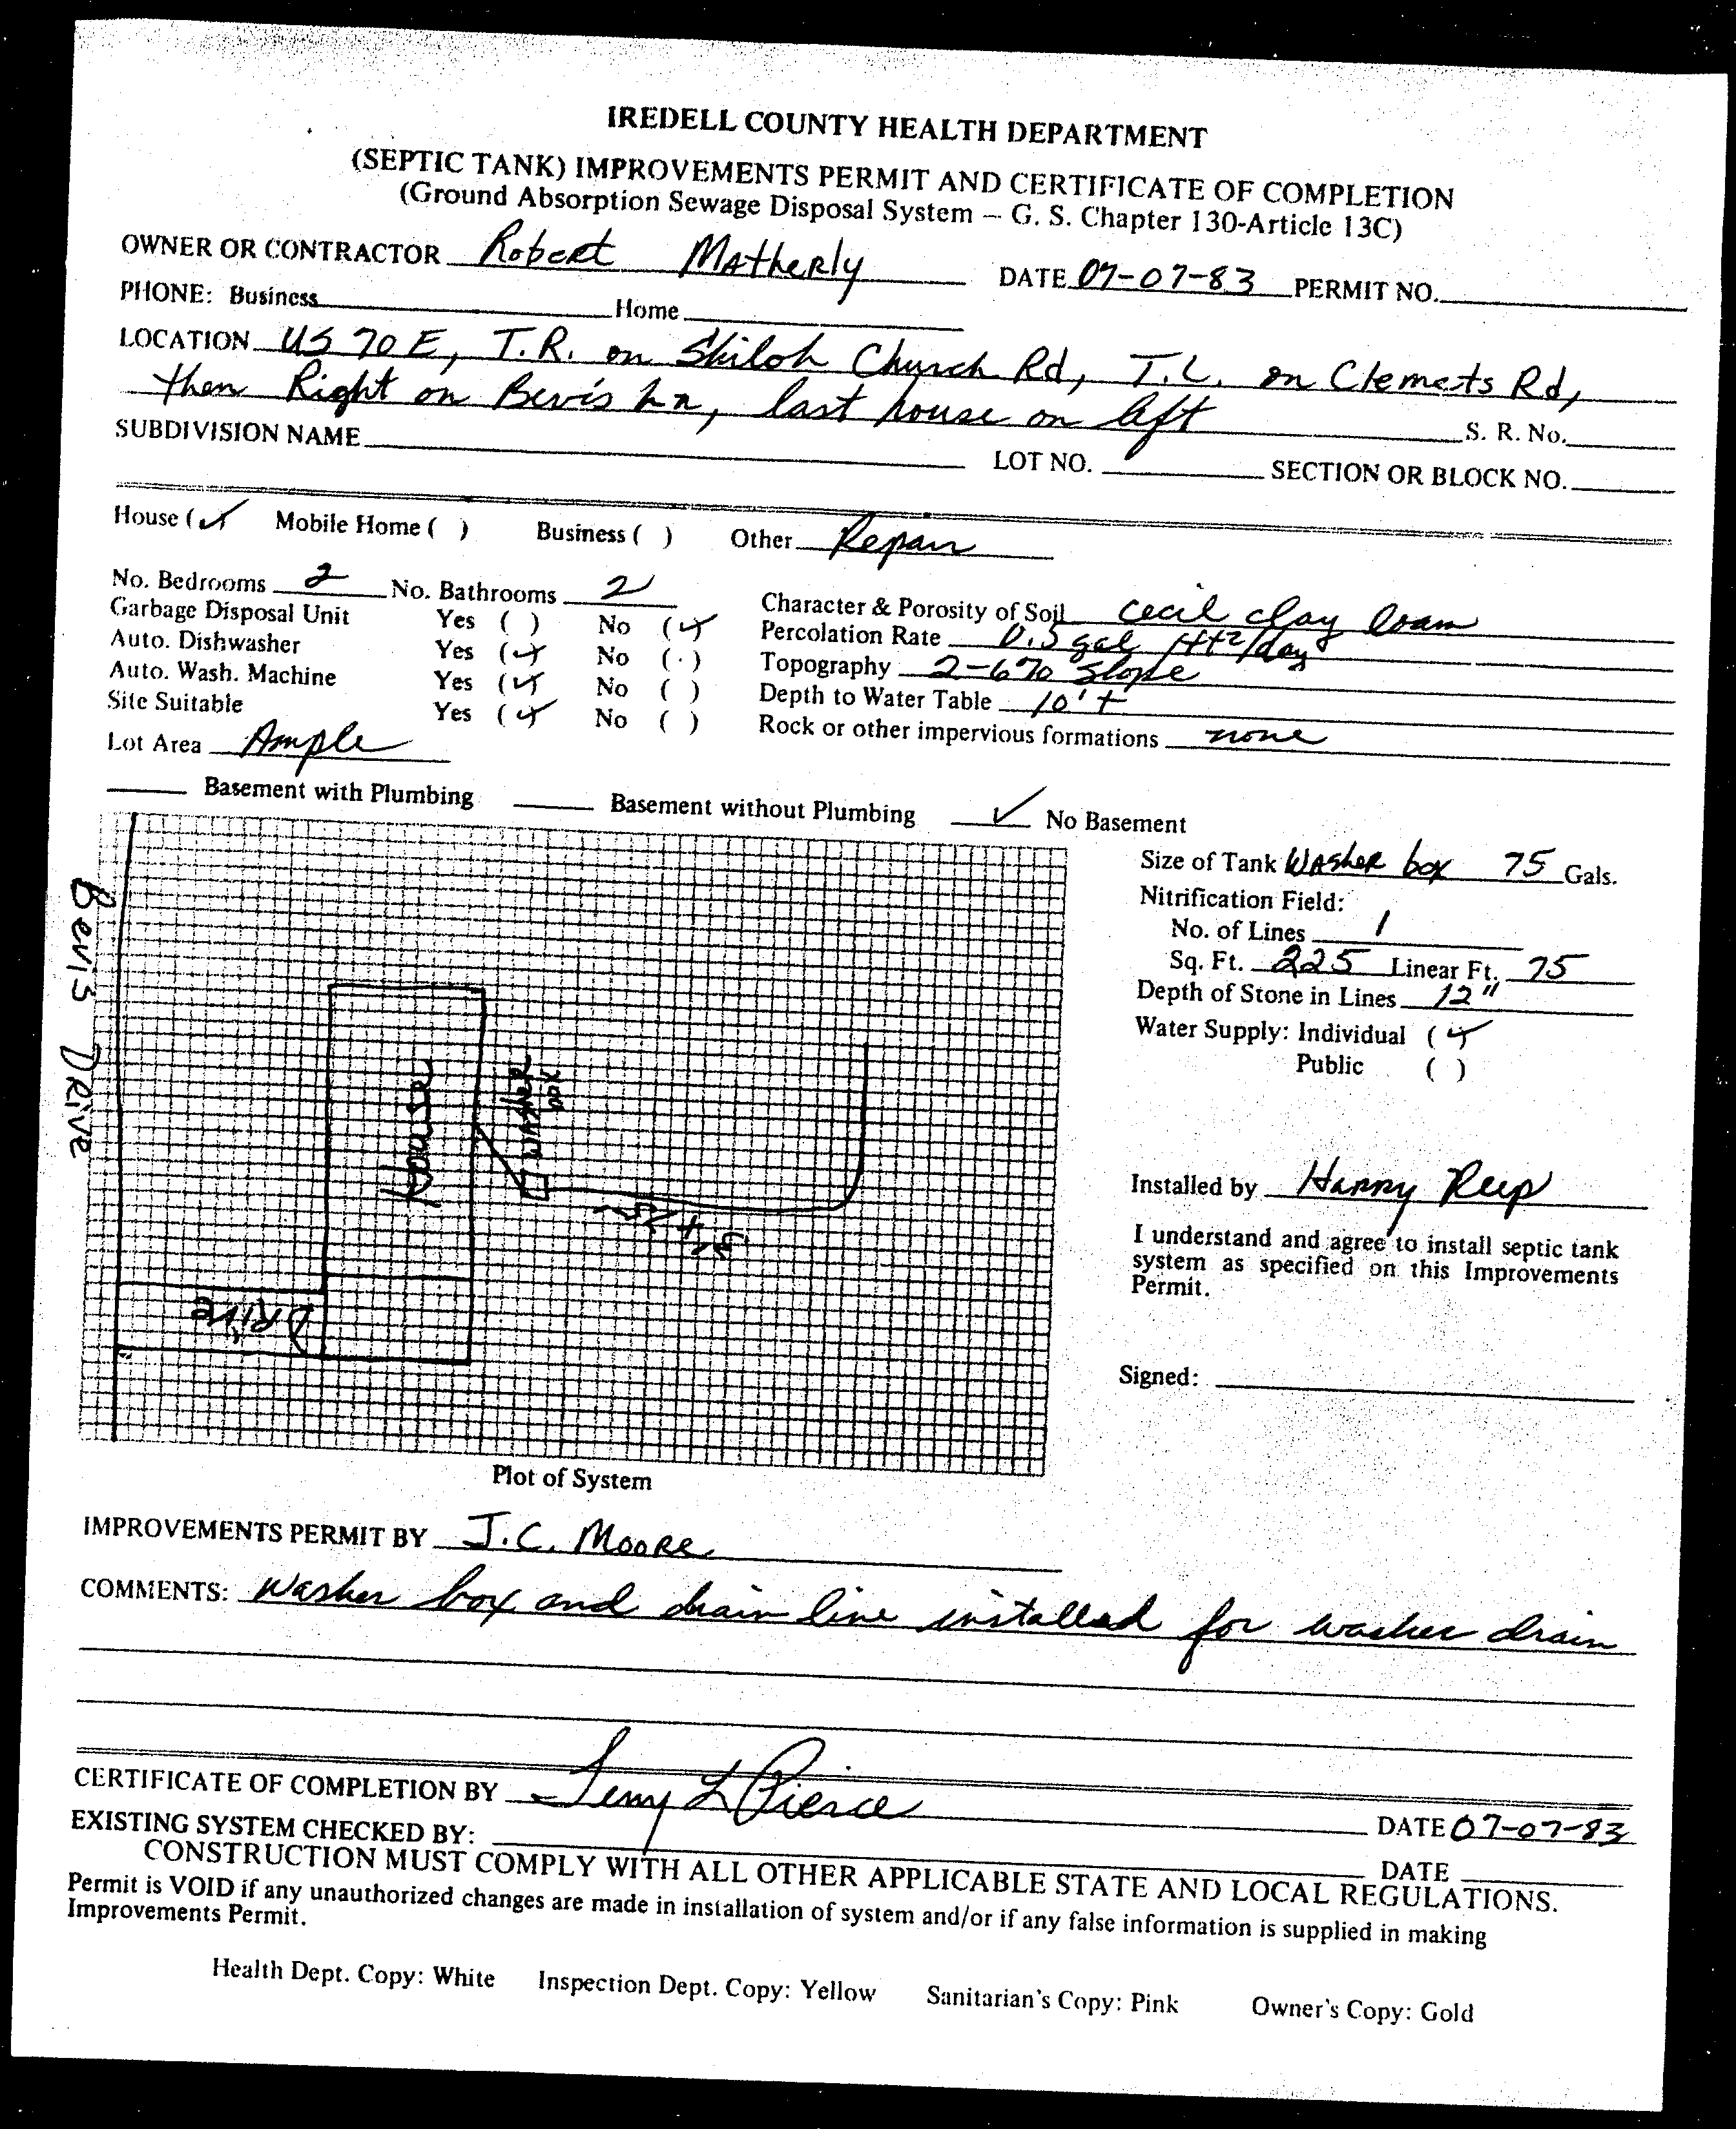 IREDELL COUNTY HEALTH DEPARTMENT
(SEPTIC TANK) IMPROVEMENTS PERMIT AND CERTIFICATE OF COMPLETION
(Ground Absorption Sewage Disposal System — G. S. Chapter 130-Article 13C)
OWNER OR CONTRACTOR Robert Matherly DATE 07-07-83 PERMIT NO.
PHONE: Business Home
LOCATION US 70 E, T.R. on Shiloh Church Rd, T.L. on Clemets Rd,
then Right on Bevis Ln, last house on left S. R. No.
SUBDIVISION NAME LOT NO. SECTION OR BLOCK NO.
House (✓) Mobile Home ( ) Business ( ) Other Repair
No. Bedrooms 2 No. Bathrooms 2
Garbage Disposal Unit Yes ( ) No (✓)
Auto. Dishwasher Yes (✓) No ( )
Auto. Wash. Machine Yes (✓) No ( )
Site Suitable Yes (✓) No ( )
Lot Area Ample
Character & Porosity of Soil Cecil clay loam
Percolation Rate 0.5 gal /ft2/day
Topography 2-6% Slope
Depth to Water Table 10'+
Rock or other impervious formations none
Basement with Plumbing Basement without Plumbing ✓ No Basement
Bevis Drive
House
Washer
box
3 x 75
Drive
Plot of System
Size of Tank Washer box 75 Gals.
Nitrification Field:
No. of Lines 1
Sq. Ft. 225 Linear Ft. 75
Depth of Stone in Lines 12"
Water Supply: Individual (✓)
Public ( )
Installed by Harry Reep
I understand and agree to install septic tank
system as specified on this Improvements
Permit.
Signed:
IMPROVEMENTS PERMIT BY J.C. Moore
COMMENTS: Washer box and drain line installed for washer drain
CERTIFICATE OF COMPLETION BY Terry L Pierce DATE 07-07-83
EXISTING SYSTEM CHECKED BY: DATE
CONSTRUCTION MUST COMPLY WITH ALL OTHER APPLICABLE STATE AND LOCAL REGULATIONS.
Permit is VOID if any unauthorized changes are made in installation of system and/or if any false information is supplied in making
Improvements Permit.
Health Dept. Copy: White Inspection Dept. Copy: Yellow Sanitarian's Copy: Pink Owner's Copy: Gold